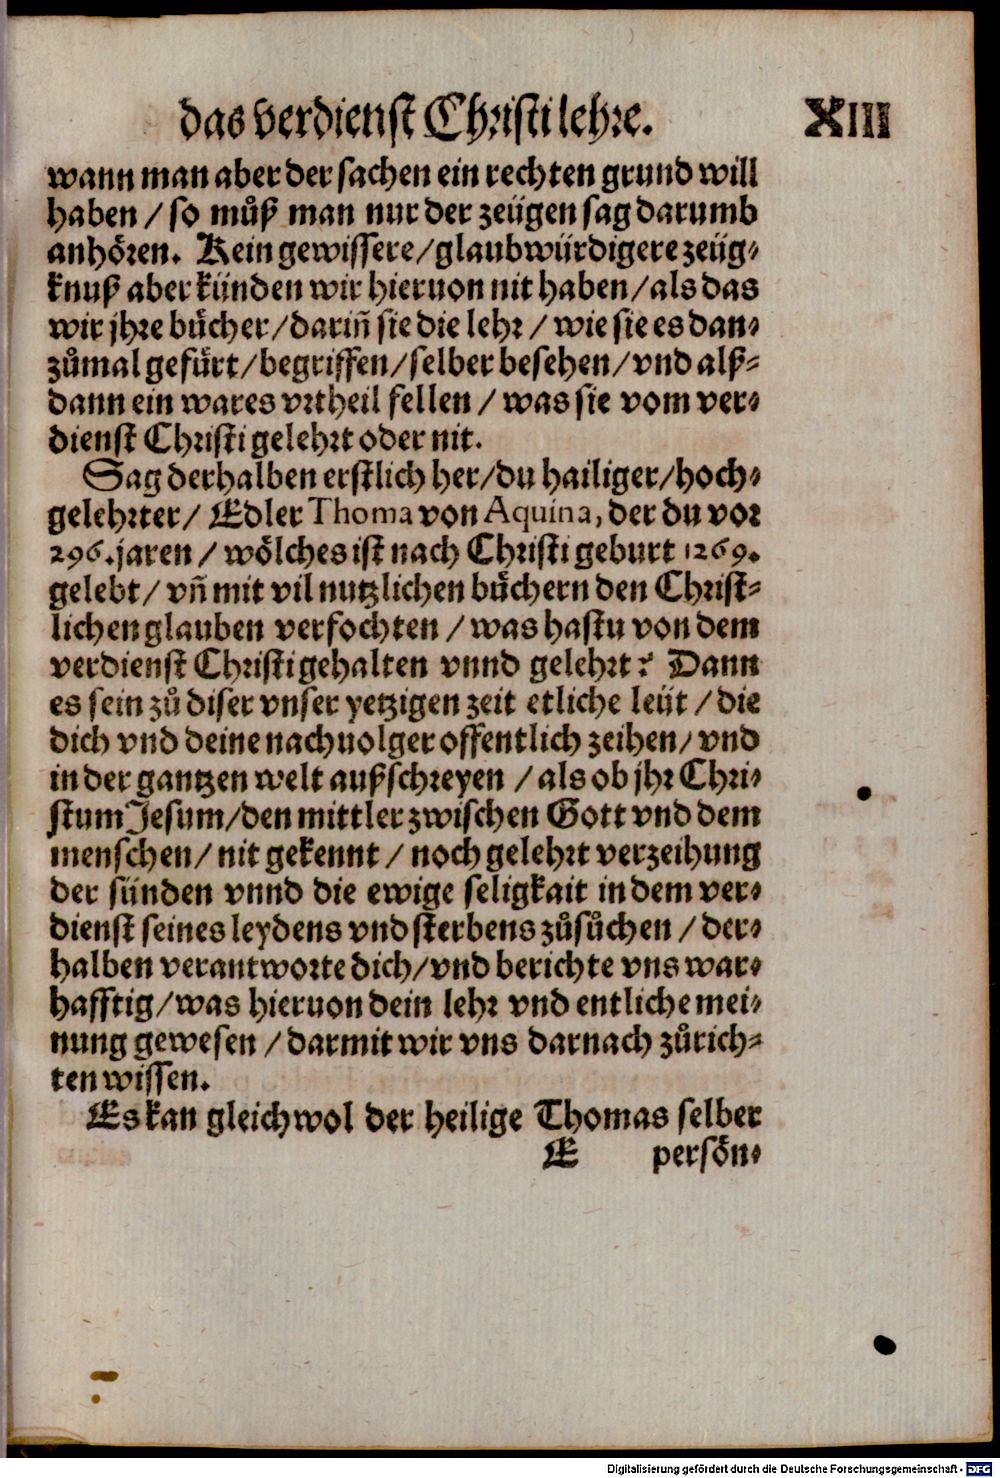 das verdienst Christi lehre. XIII
wann man aber der sachen ein rechten grund will
haben / so můß man nur der zeügen sag darumb
anhören. Kein gewissere/glaubwürdigere zeüg⸗
knuß aber künden wir hieruon nit haben/als das
wir jhre bücher/dariñ sie die lehr / wie sie es dan⸗
zůmal gefürt/begriffen/selber besehen/vnd alß⸗
dann ein wares vrtheil fellen / was sie vom ver⸗
dienst Christi gelehrt oder nit.
Sag derhalben erstlich her/du hailiger/hoch⸗
gelehrter/ Edler Thoma von Aquina, der du vor
296.jaren / wölches ist nach Christi geburt 1269.
gelebt/ vñ mit vil nutzlichen büchern den Christ⸗
lichen glauben verfochten / was hastu von dem
verdienst Christi gehalten vnnd gelehrt? Dann
es sein zů diser vnser yetzigen zeit etliche leüt / die
dich vnd deine nachuolger offentlich zeihen/ vnd
in der gantzen welt außschreyen / als ob jhr Chri⸗
stum Jesum/den mittler zwischen Gott vnd dem
menschen/ nit gekennt / noch gelehrt verzeihung
der sünden vnnd die ewige seligkait in dem ver⸗
dienst seines leydens vnd sterbens zůsůchen / der⸗
halben verantworte dich/vnd berichte vns war⸗
hafftig/was hieruon dein lehr vnd entliche mei⸗
nung gewesen / darmit wir vns darnach zůrich⸗
ten wissen.
Es kan gleichwol der heilige Thomas selber
E persön⸗
Digitalisierung gefördert durch die Deutsche Forschungsgemeinschaft - DFG